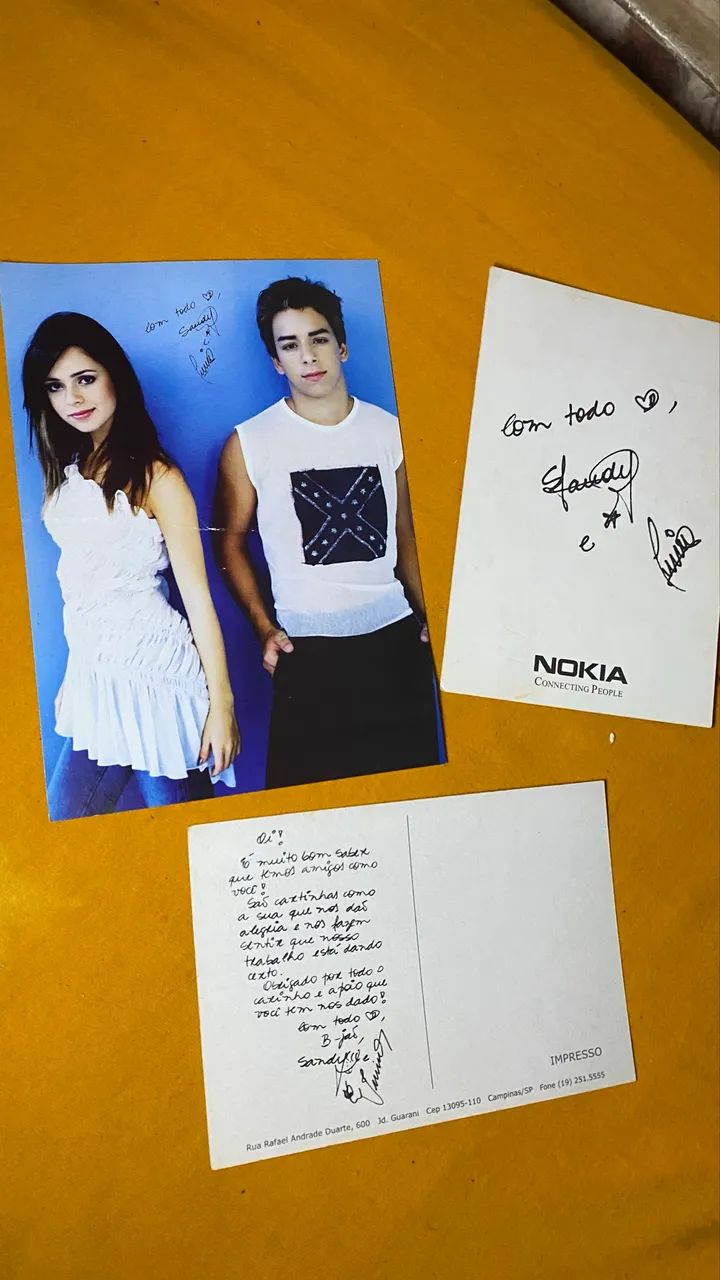 com todo ♡,
Sandy
e
Junior
com todo ♡,
Sandy
e
Junior
NOKIA
CONNECTING PEOPLE
Oi!
É muito bom saber
que temos amigos como
você!
São cartinhas como
a sua que nos dão
alegria e nos fazem
sentir que nosso
trabalho está dando
certo.
Obrigado por todo o
carinho e apoio que
você tem nos dado!
Com todo ♡,
B-jão,
Sandy e
Junior
IMPRESSO
Rua Rafael Andrade Duarte, 600 Jd. Guarani Cep 13095-110 Campinas/SP Fone (19) 251.5555